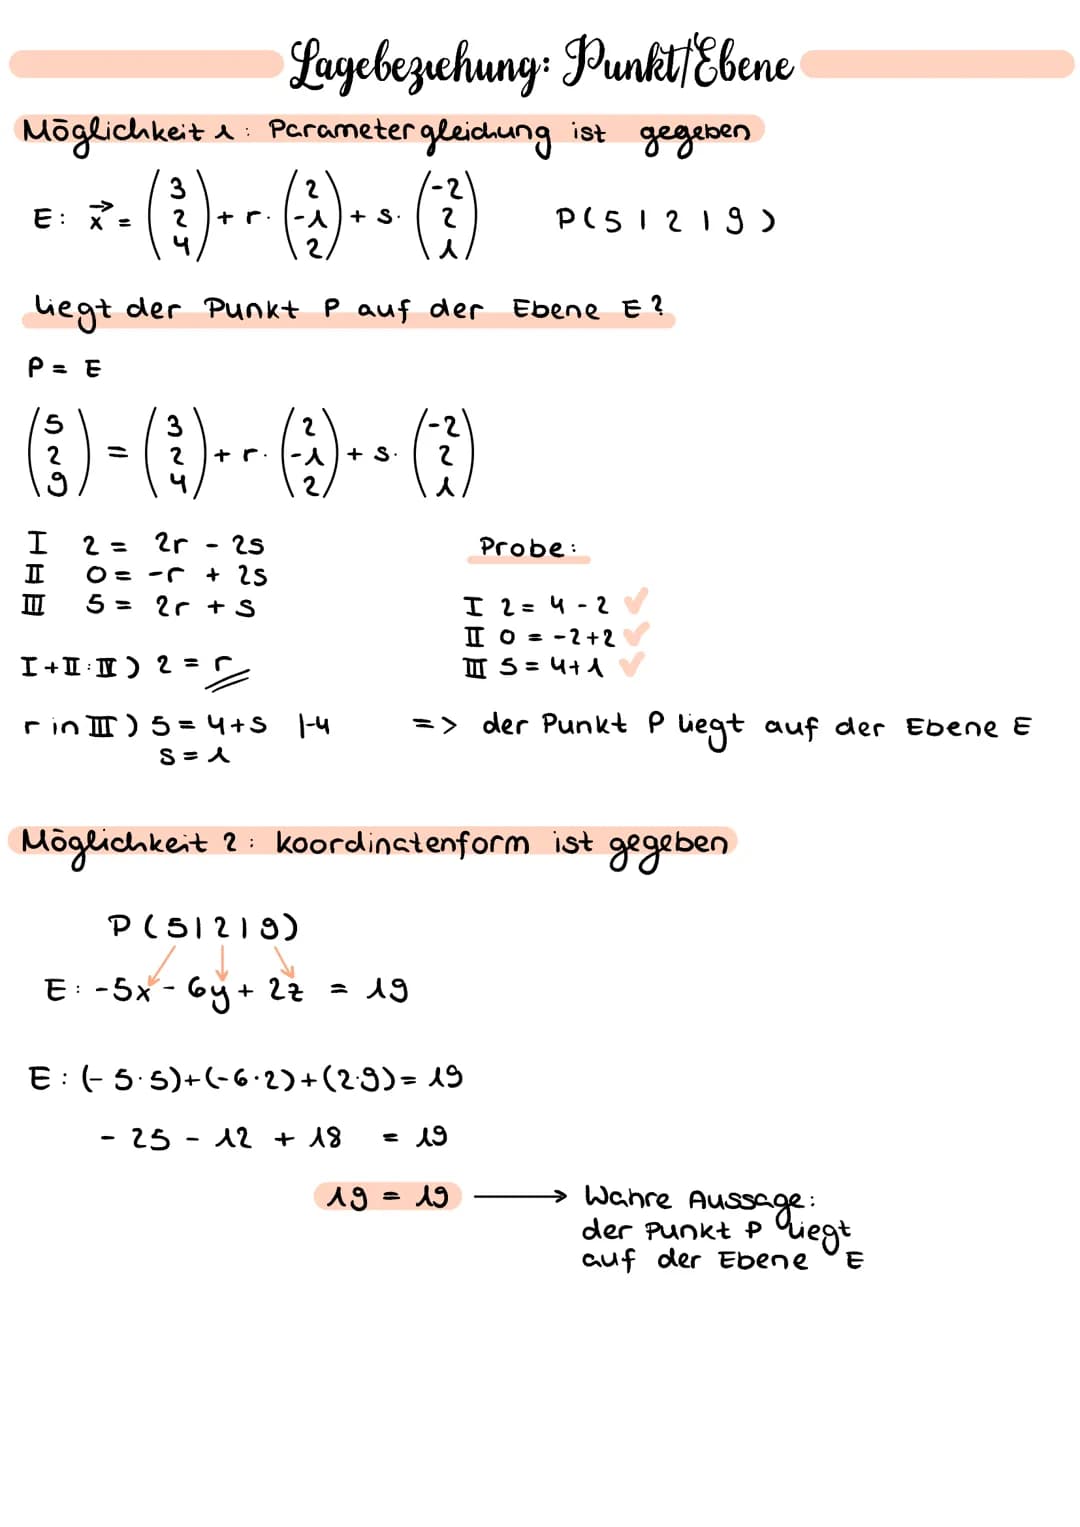 Lagebeziehung: Punkt/Ebene
Möglichkeit 1: Parametergleichung ist gegeben
E: x⃗ = (3 2 4) + r · (2 -1 2) + s · (-2 2 1) P(5|2|9)
Liegt der Punkt P auf der Ebene E?
P = E
(5 2 9) = (3 2 4) + r · (2 -1 2) + s · (-2 2 1)
I 2 = 2r - 2s
II 0 = -r + 2s
III 5 = 2r + s
I+II:IV) 2 = r
r in III) 5 = 4+s |-4
s = 1
Probe:
I 2 = 4 - 2 ✓
II 0 = -2+2 ✓
III 5 = 4+1 ✓
=> der Punkt P liegt auf der Ebene E
Möglichkeit 2: Koordinatenform ist gegeben
P(5|2|9)
E: -5x - 6y + 2z = 19
E: (-5·5)+(-6·2)+(2·9)= 19
- 25 - 12 + 18 = 19
19 = 19 → Wahre Aussage:
der Punkt P liegt
auf der Ebene E